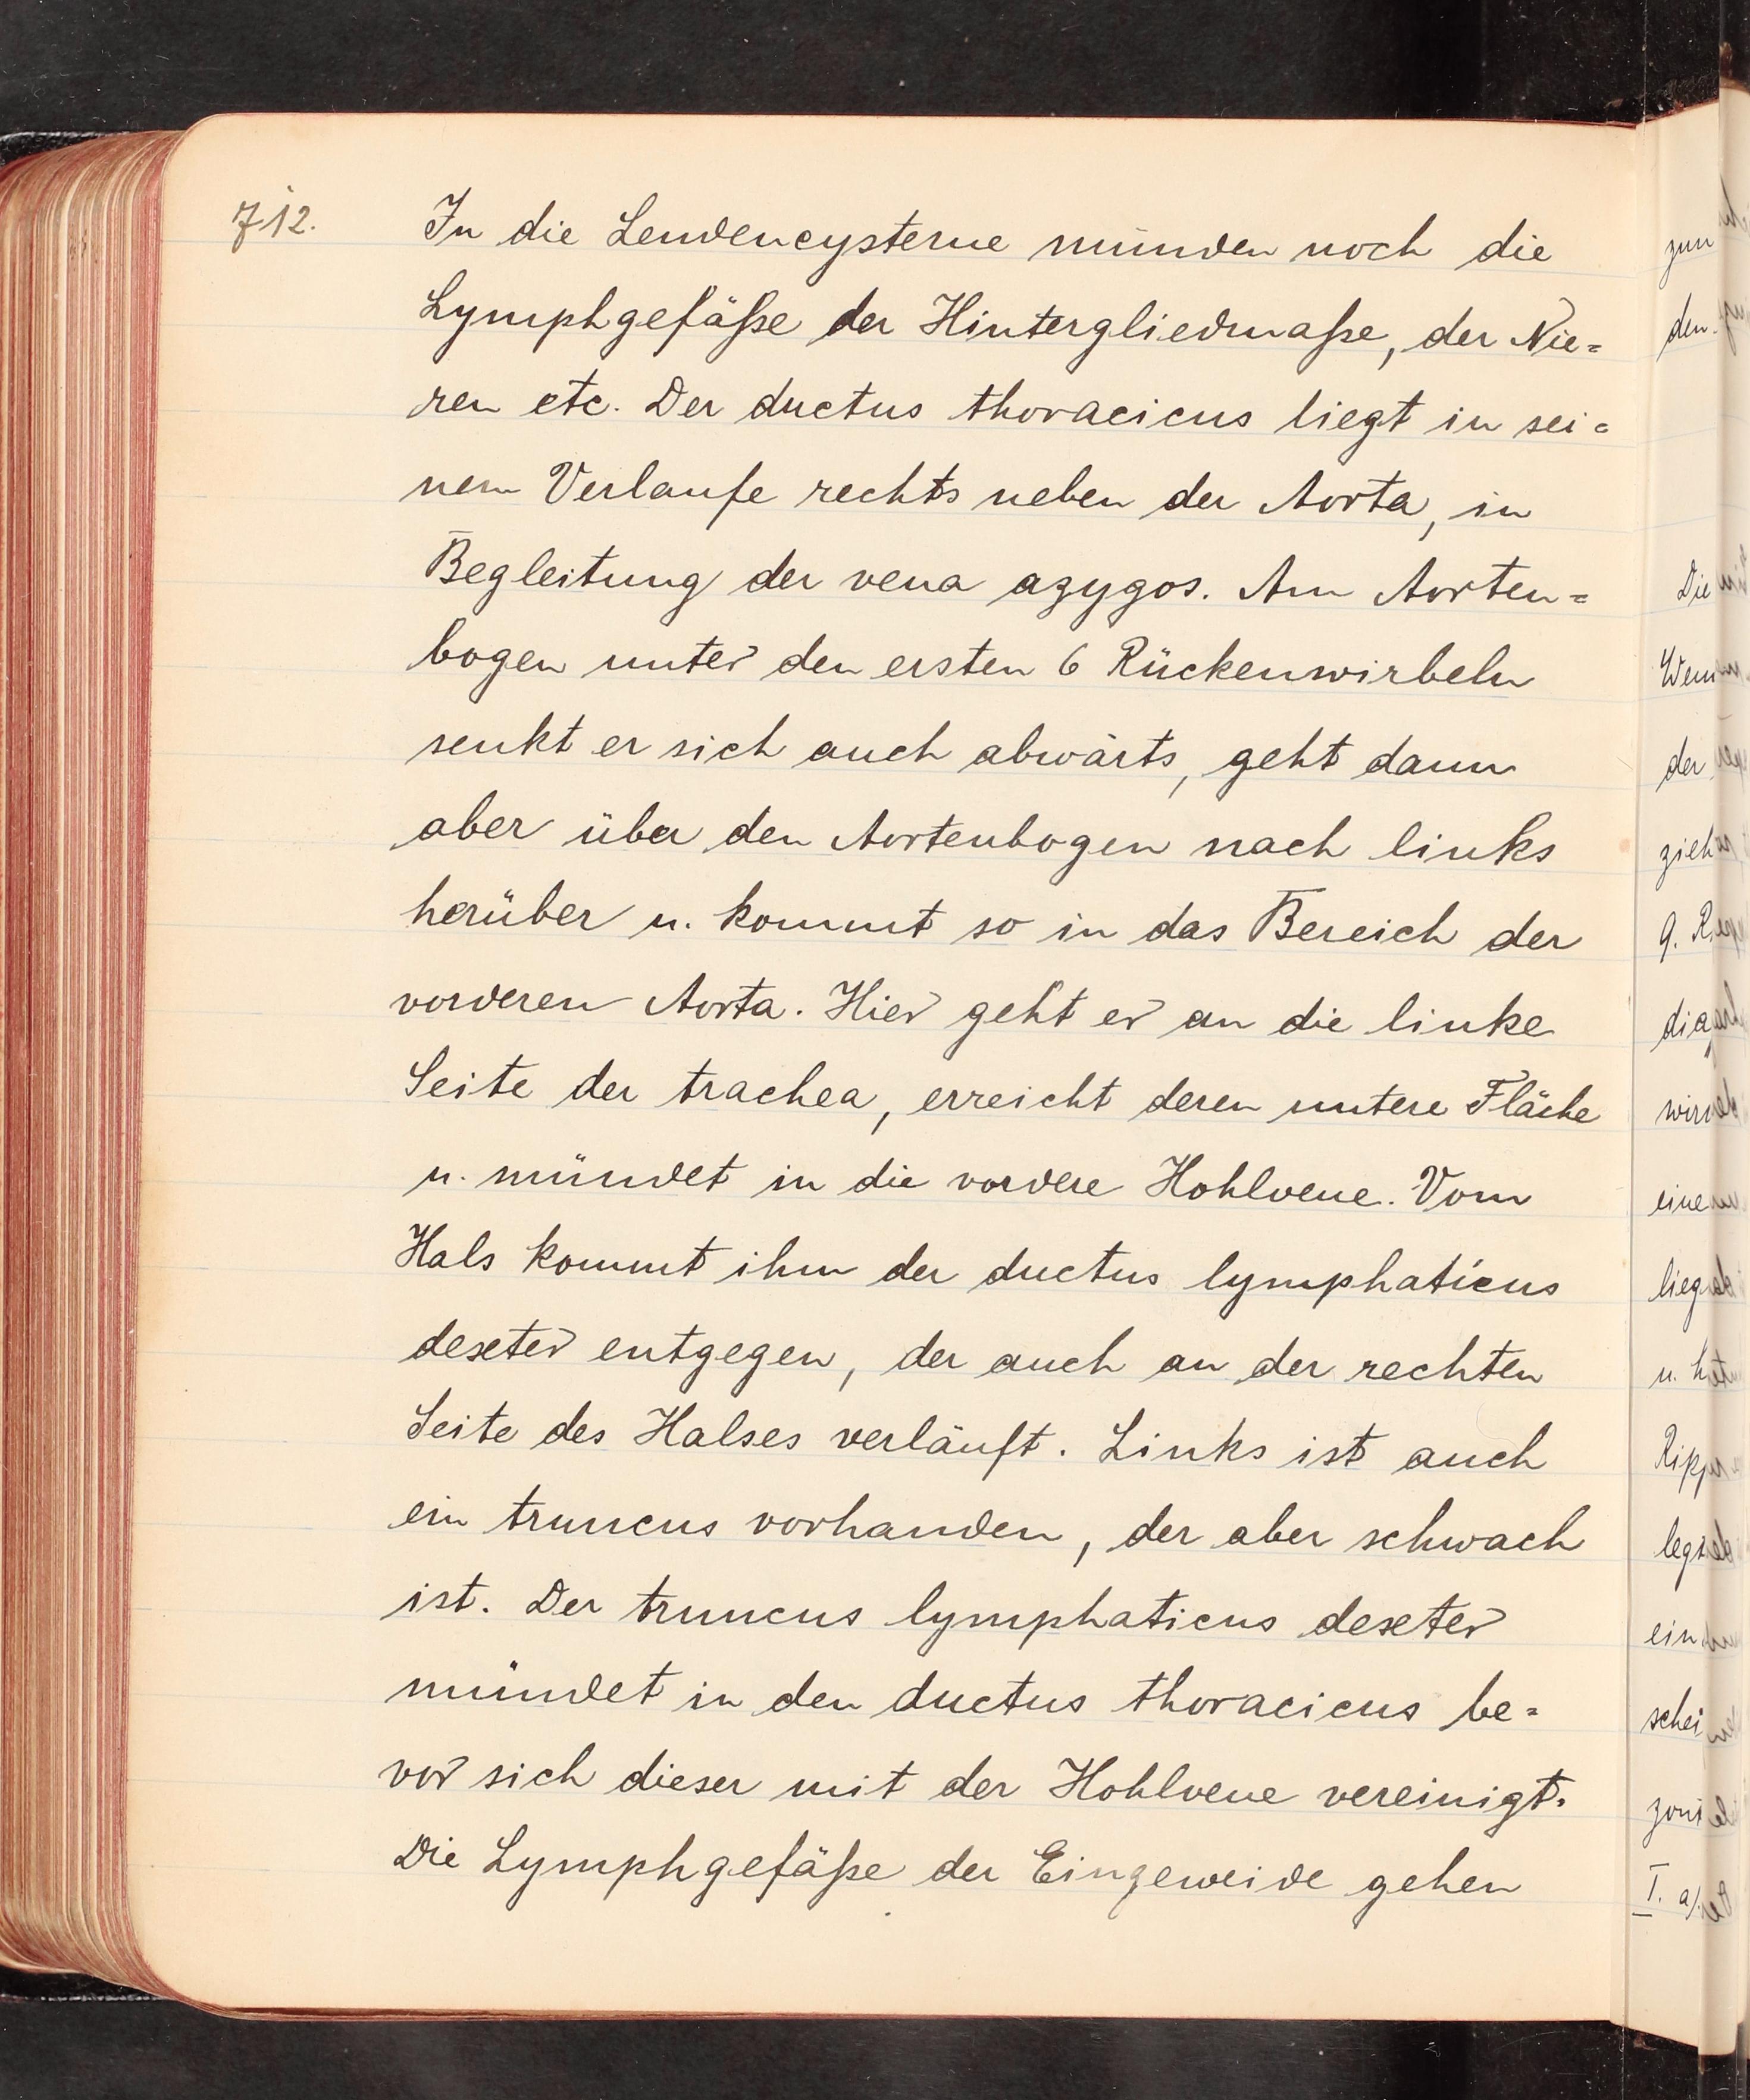 712.
In die Lendencysterne münden noch die
Lymphgefäße der Hintergliedmaße, der Nie=
ren etc. Der ductus thoracicus liegt in sei=
nem Verlaufe rechts neben der Aorta, in
Begleitung der vena azygos. Am Aorten=
bogen unter den ersten 6 Rückenwirbeln
senkt er sich auch abwärts, geht dann
aber über den Aortenbogen nach links
herüber u. kommt so in das Bereich der
vorderen Aorta. Hier geht er an die linke
Seite der trachea, erreicht deren untere Fläche
u. mündet in die vordere Hohlvene. Vom
Hals kommt ihm der ductus lymphaticus
dexter entgegen, der auch an der rechten
Seite des Halses verläuft. Links ist auch
ein truncus vorhanden, der aber schwach
ist. Der truncus lymphaticus dexter
mündet in den ductus thoracicus be=
vor sich dieser mit der Hohlvene vereinigt.
Die Lymphgefäße der Eingeweide gehen